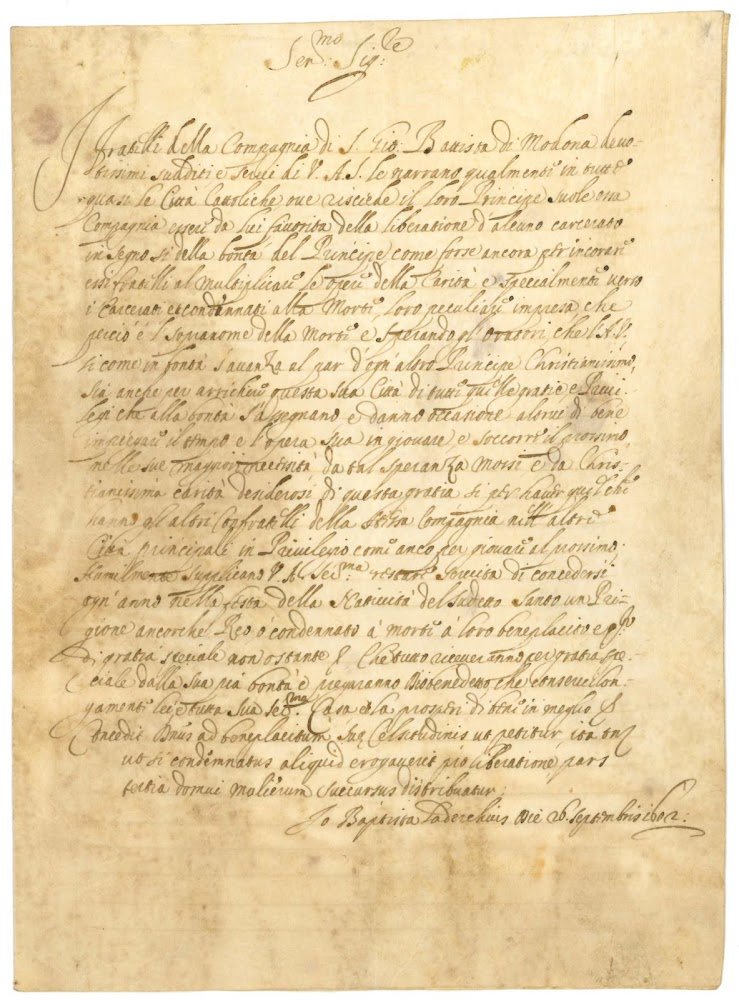 Ser.mo Sig.re
I fratelli della Compagnia di S. Gio: Battista di Modona devo-
tissimi sudditi e servi di V. A. S. le narrano qualmente in tutte
quasi le Città Catoliche ove risiede il loro Principe suole essa
Compagnia esser da lui favorita della liberatione d'alcuno carcerato
in segno si della bontà del Principe come forse ancora per incorar
essi fratelli al multiplicare le opere della Carità e specialmente verso
i Carcerati et condannati alla Morte loro peculiare impresa che
perciò é l sopranome della Morte e sperando gl'oratori che l'A. V.
si come in bontà s'avanza al par d'ogn'altro Principe Christianissimo,
sia anche per arrichire questa sua Città di tutte quelle gratie e Privi-
legi che alla bontà s'assegnano e danno occasione altrui di bene
impiegare il tempo e l'opera sua in giovare e soccorrere il prossimo
nelle sue maggiori necessità da tal speranza mossi e da Chris-
tianissima carità desiderosi di questa gratia si per haver quel che
hanno gl'altri Confratelli della stessa Compagnia nell'altre
Città principali in Privilegio come anco per giovare al prossimo
humilmente supplicano V. A. Ser.ma restare servita di concedersi
ogn'anno nella festa della Natività del sudetto Santo un Pri-
gione ancorche Reo ó condennato à morte à loro beneplacito e
di gratia speciale non ostante & Che tutto riceveranno per gratia spe-
ciale dalla sua pia bontà e pregaranno che conservi lon-
gamente lei e tutta sua Ser.ma Casa et la prosperi di bene in meglio &
Concedit Dnus ad beneplacitum suę Celsitudinis ut petitur ita tn
ut si condemnatus aliquid erogaverit pro liberatione pars
tertia domui mulierum succursus distribuatur;
Jo Baptista Laderchius Die 26 septembris 1602: